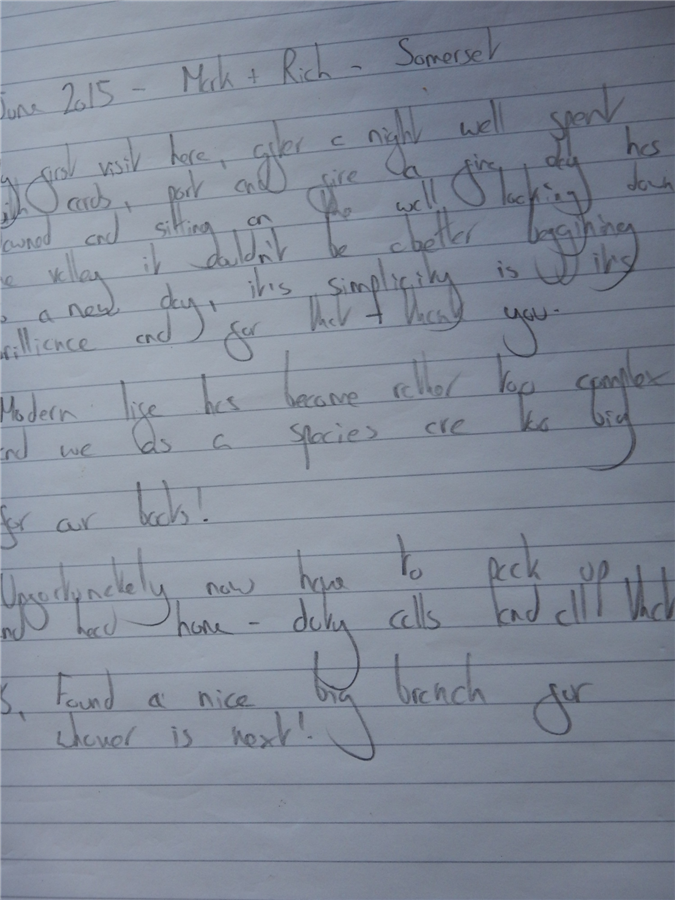 June 2015 - Mark + Rich - Somerset
first visit here, after a night well spent
cards, port and fire a fine day has
and sitting on the wall, looking down
valley it couldn't be a better beggining
a new day, it's simplicity is it's
and for that I thank you.
Modern life has become rather too complex
and we as a species are too big
for our boots!
Unfortunately now have to pack up
and head home - duty calls and all that
S. Found a nice big branch for
whoever is next!